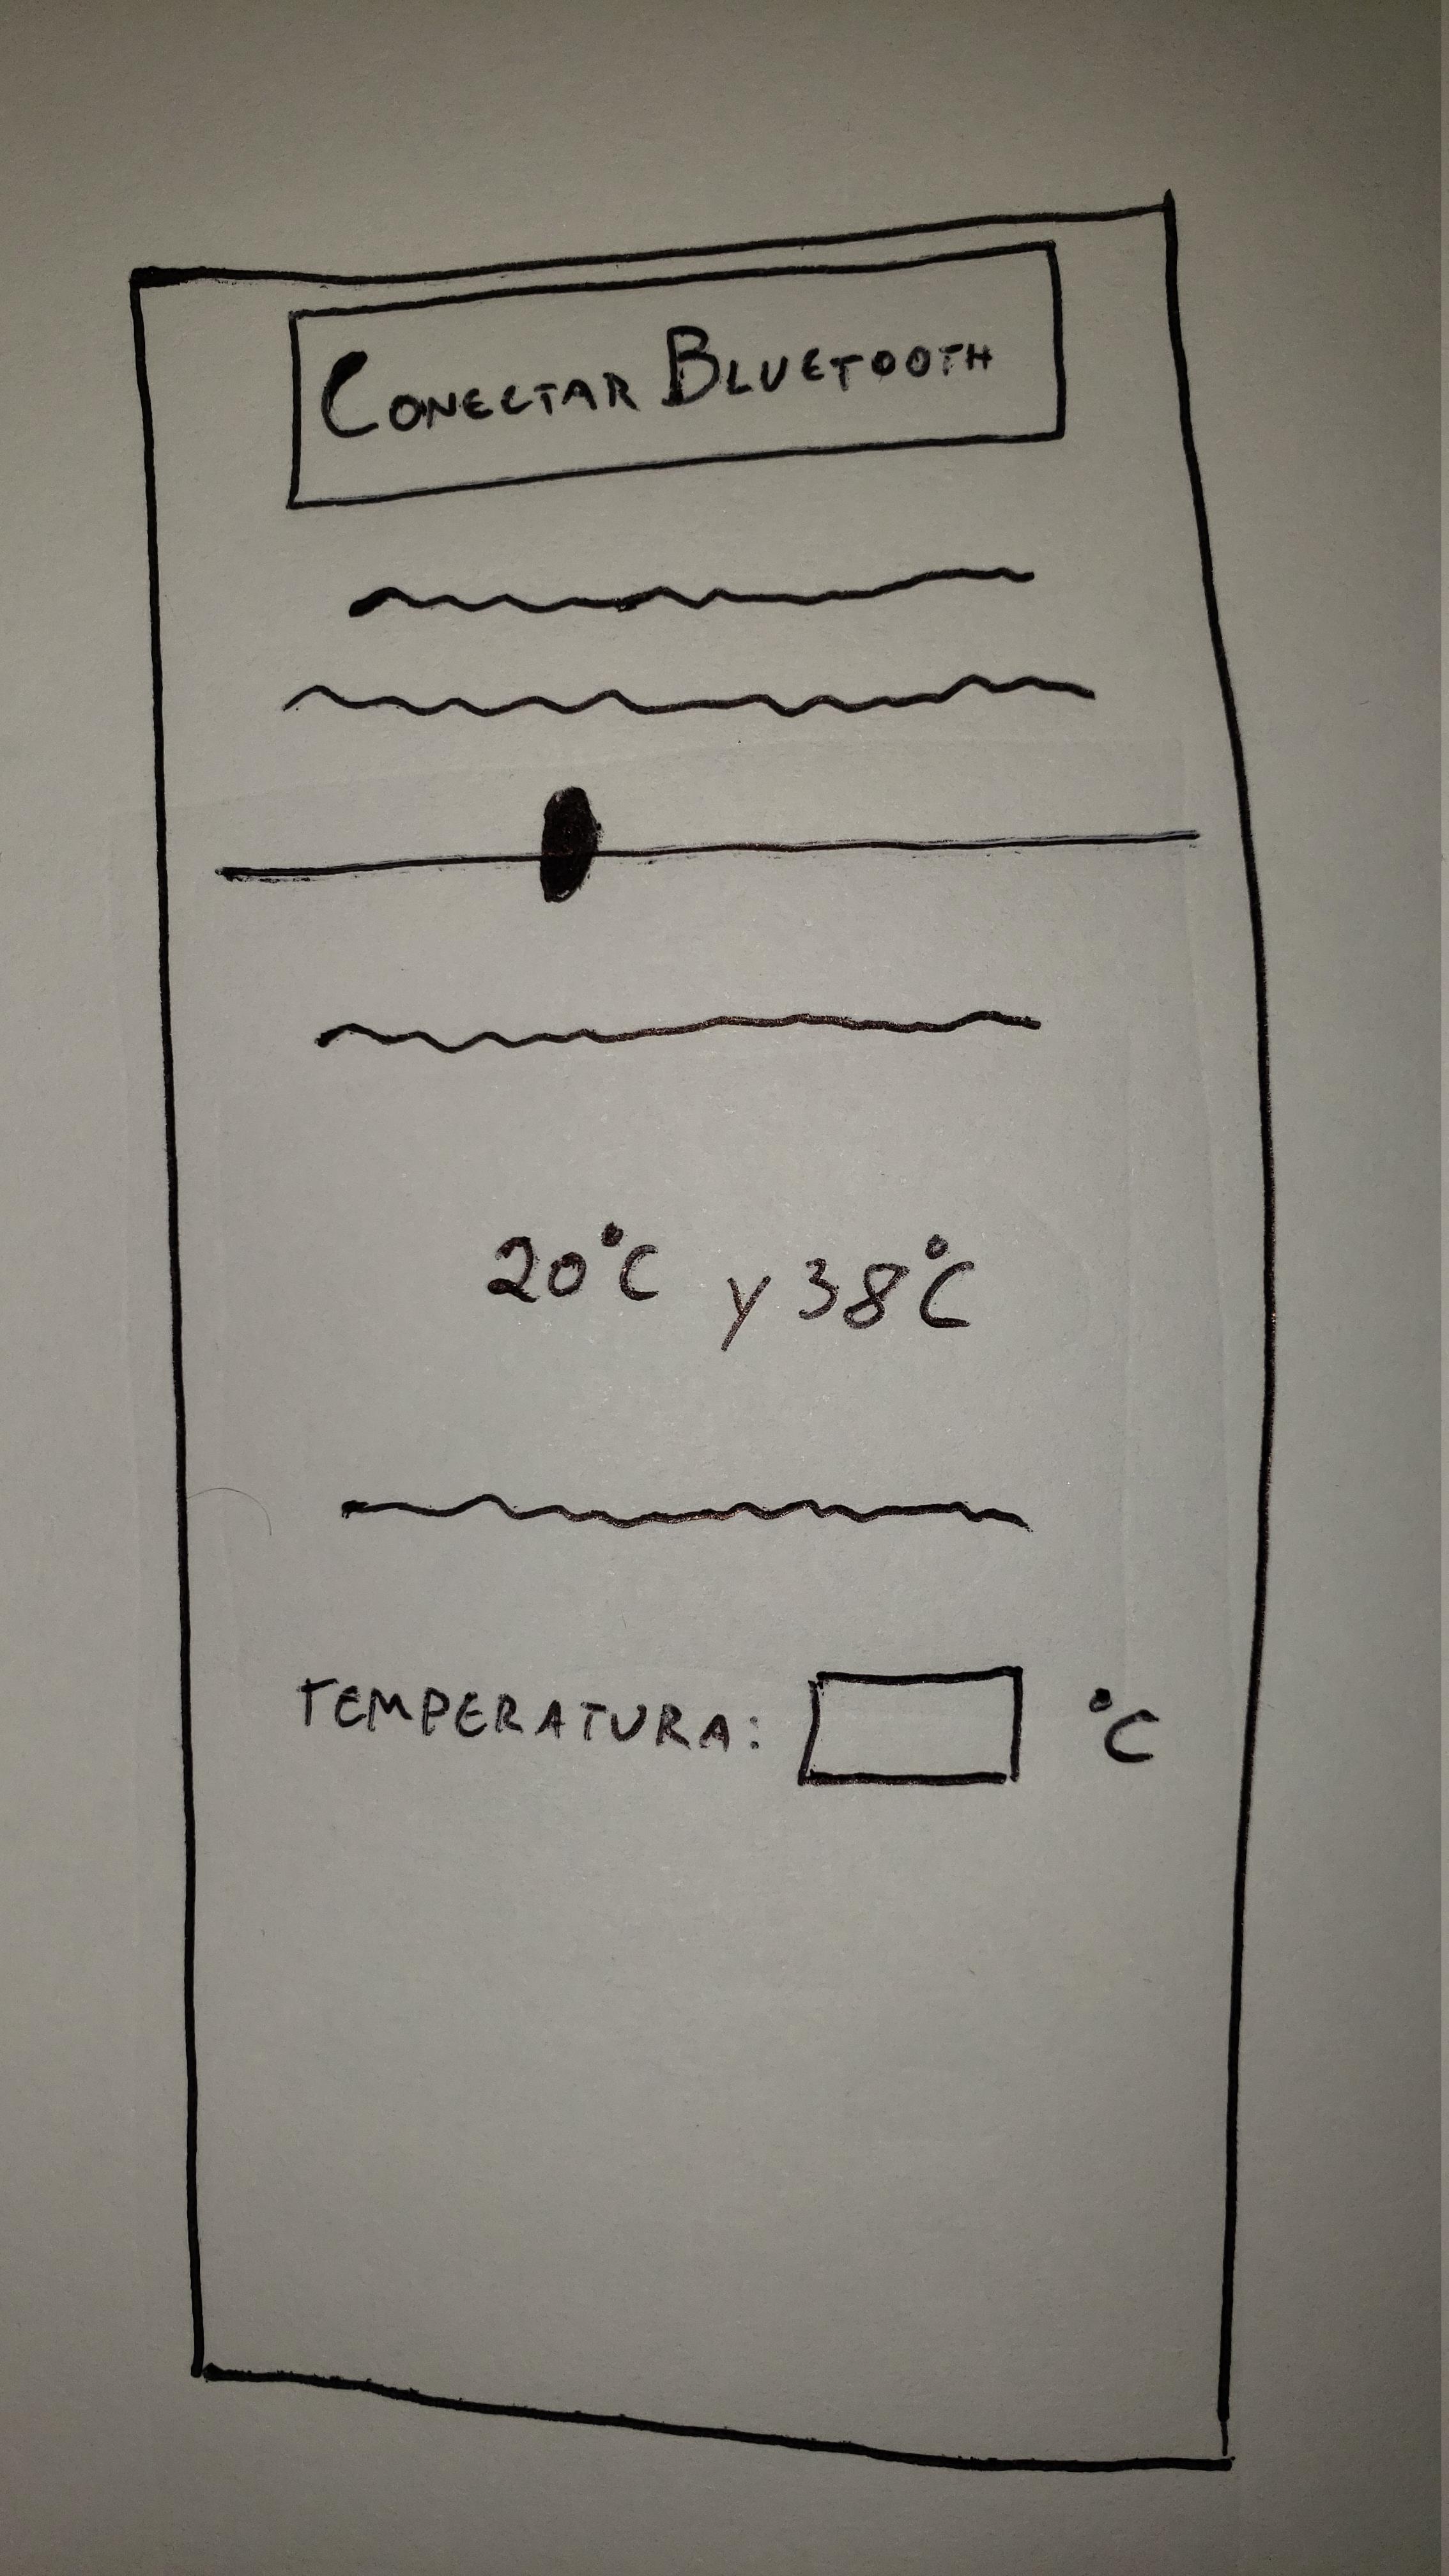 CONECTAR BLUETOOTH
20°C y 38°C
TEMPERATURA: °C